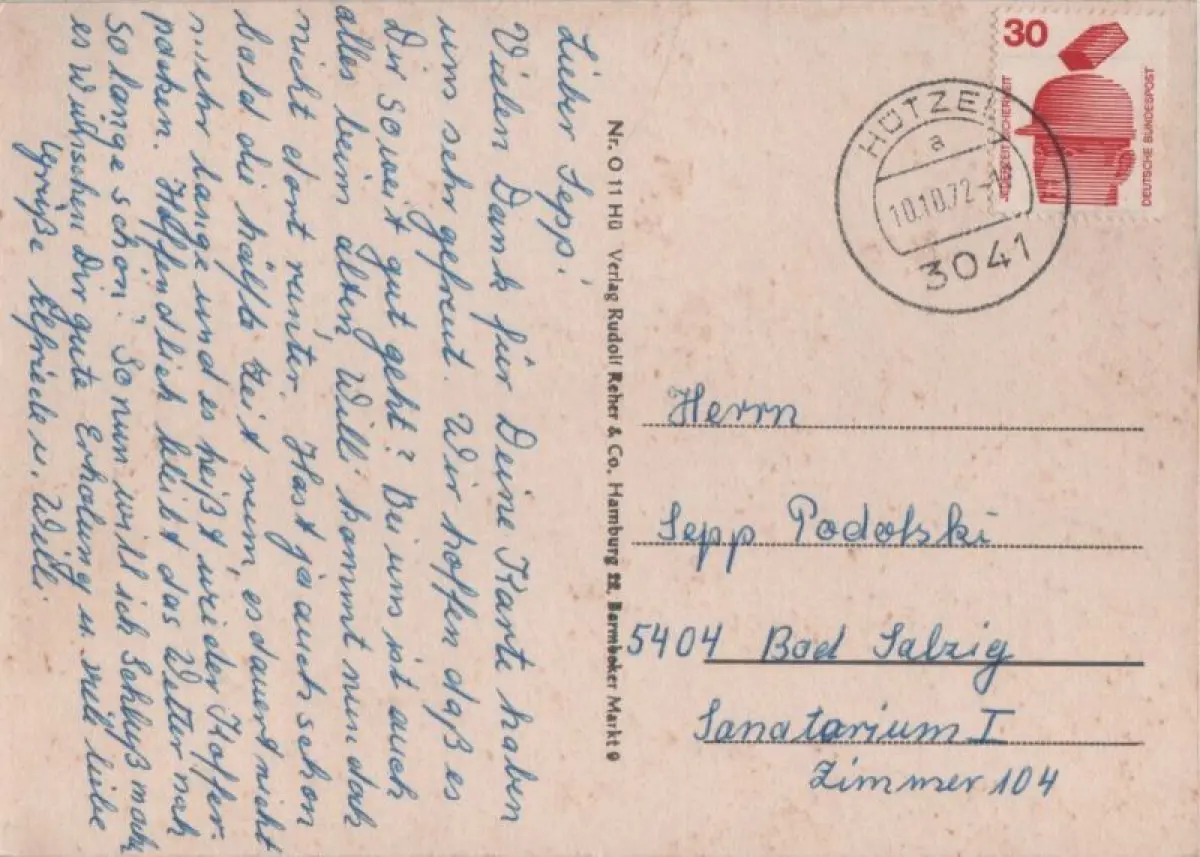 Lieber Sepp!
Vielen Dank für Deine Karte haben
uns sehr gefreut. Wir hoffen daß es
Dir soweit gut geht? Bei uns ist auch
alles beim alten, Willi kommt nun doch
nicht dort runter. Hast ja auch schon
bald die hälfte Zeit rum, es dauert nicht
mehr lange und es heißt wieder Koffer-
packen. Hoffendlich bleibt das Wetter noch
so lange schön. So nun will ich Schluß machen
es wünschen Dir gute Erholung u. viele liebe
Grüße Elfriede u. Willi
Nr. O 11 HÜ Verlag Rudolf Reher & Co. Hamburg 22, Barmbeker Markt 9
30
JEDERZEIT SICHERHEIT
DEUTSCHE BUNDESPOST
HÜTZEL
a
10.10.72
3041
Herrn
Sepp Podolski
5404 Bad Salzig
Sanatarium I
Zimmer 104